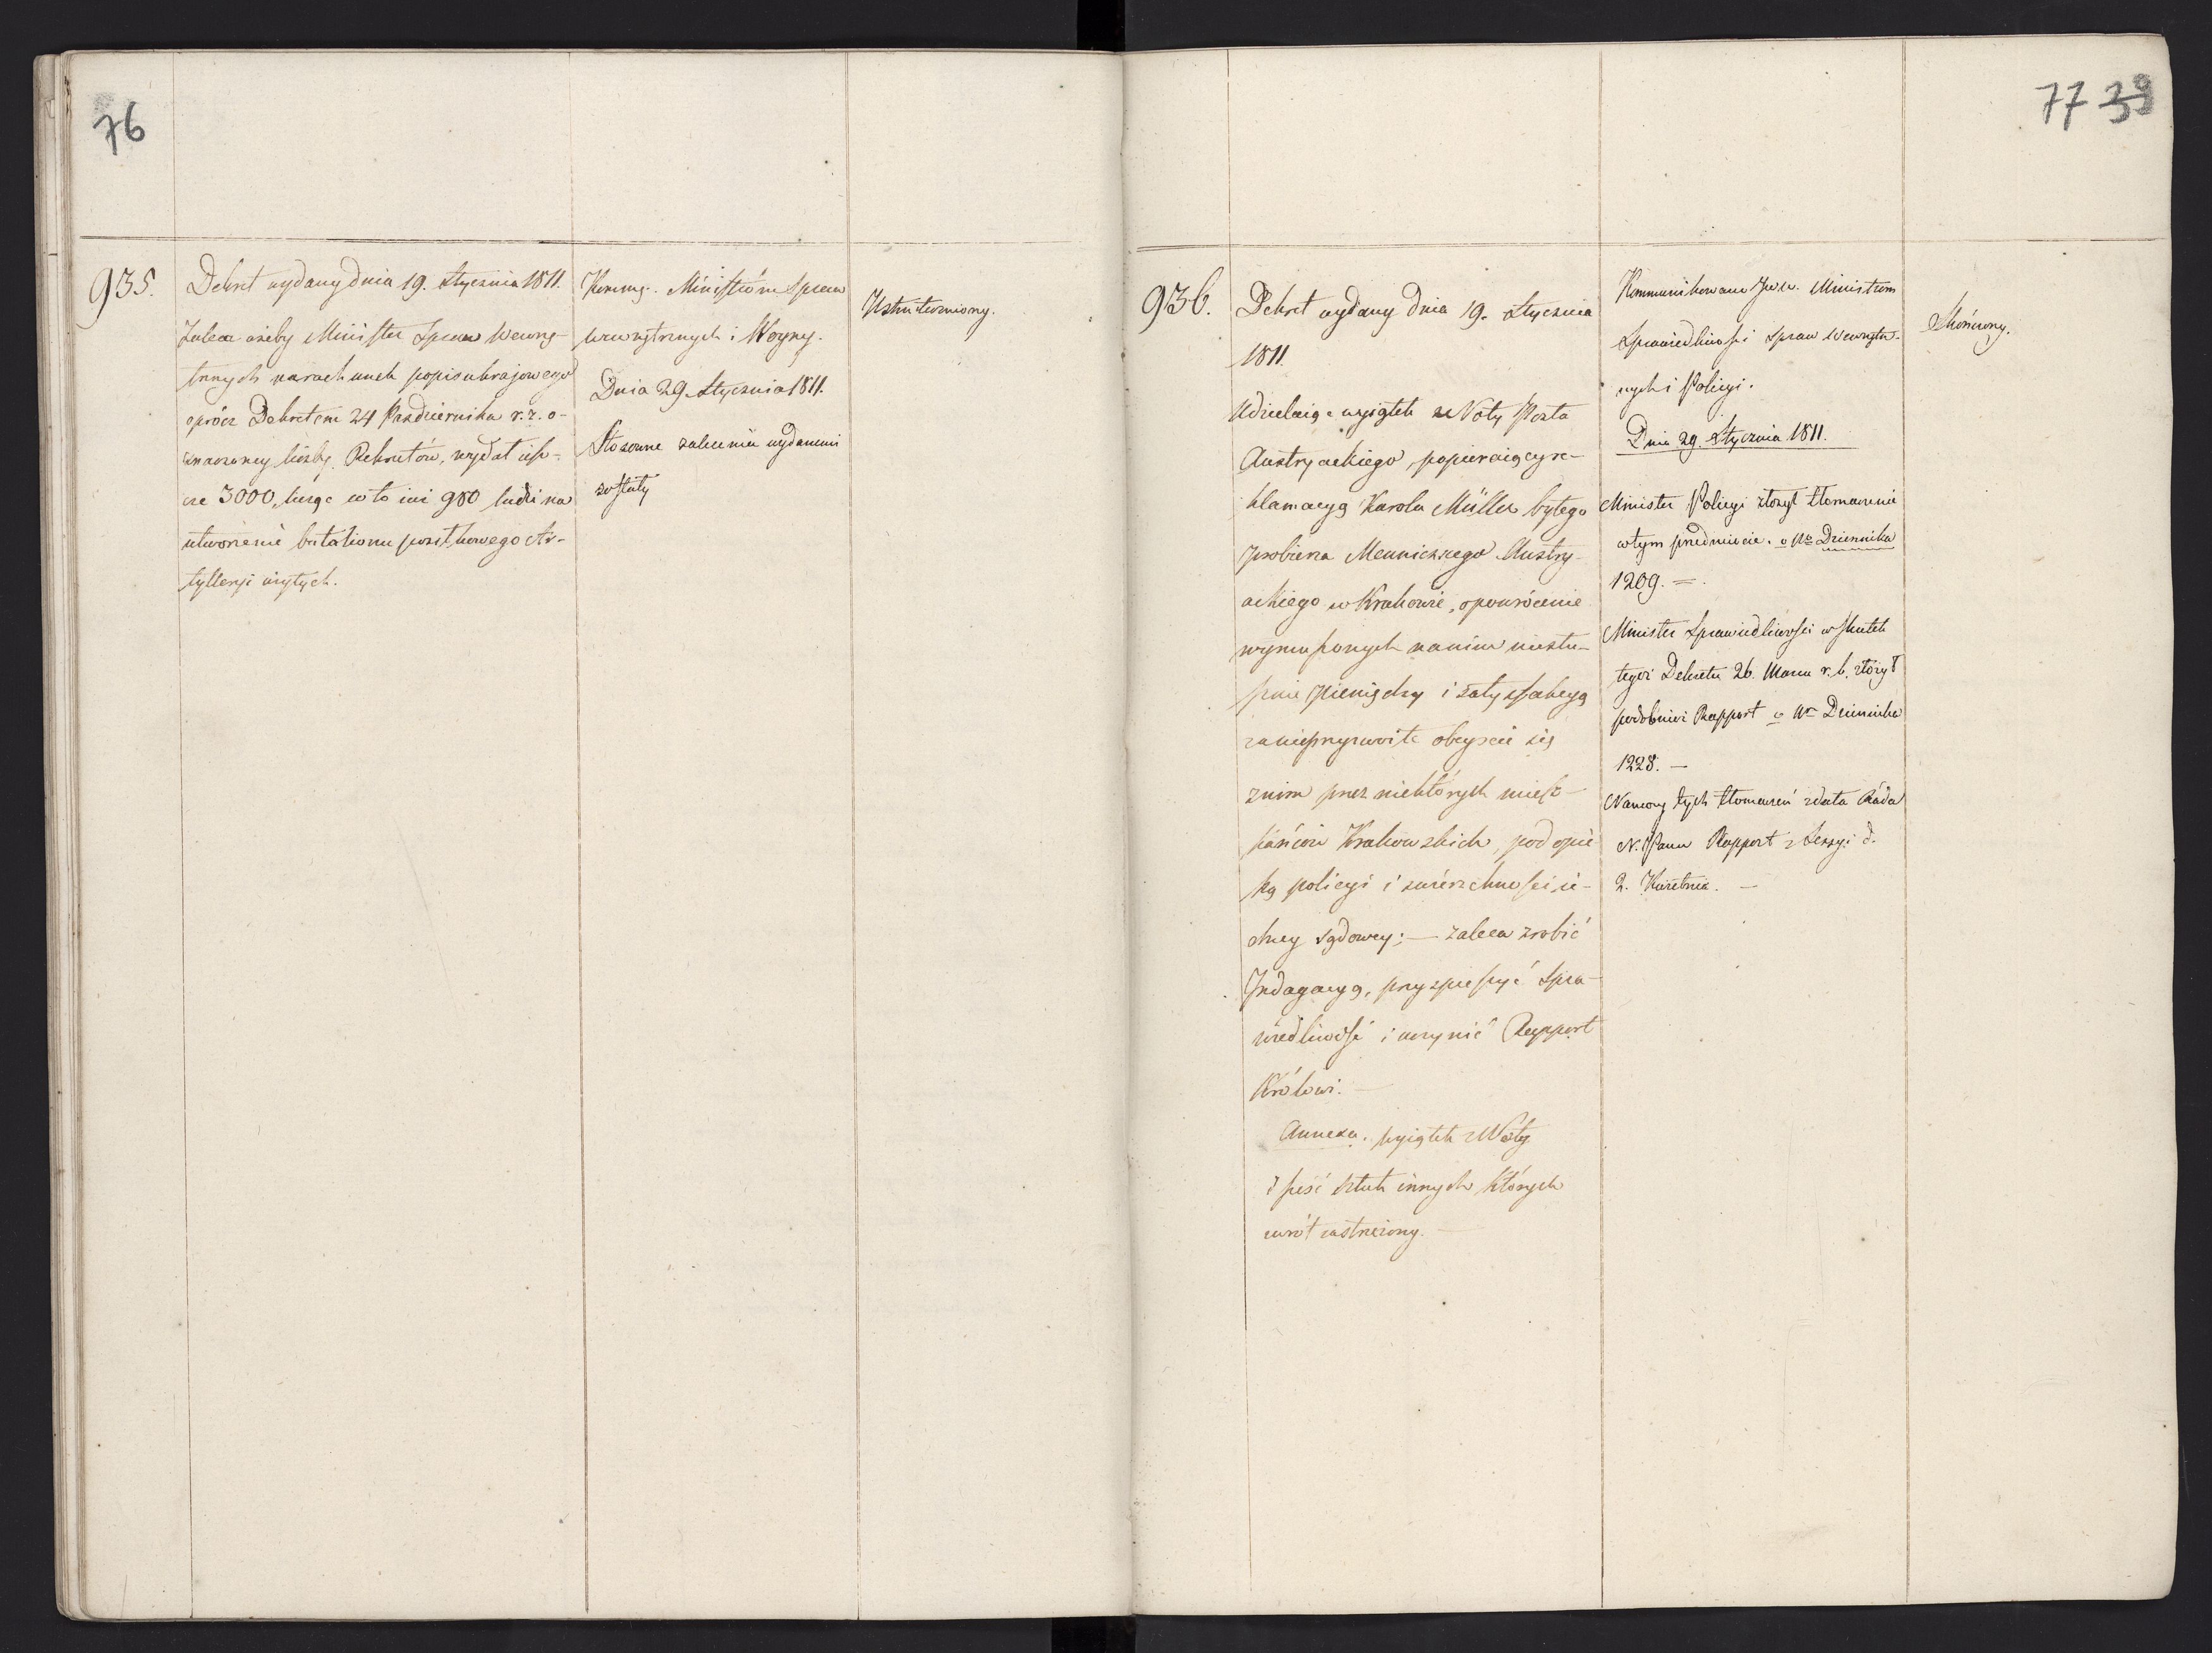 76
935.
Dekret wydany dnia 19. Stycznia 1811.
Zaleca ażeby Minister Spraw Wewnę-
trznych na rachunek popisu krajowego
oprócz Dekretem 24 Pazdziernika r. z. o-
znaczoney liczby Rekrutów, wydał iesz-
cze 3000, licząc w to iuż 980 ludzi na
utworzenie batalionu pozytkowego Ar-
tylleryi użytych.
Kommu. Ministrom Spraw
wewnętrznych i Woyny.
Dnia 29. Stycznia 1811.
Stosowne zalecenia wydanemi
zostały
Uskuteczniony.
77 39
936.
Dekret wydany dnia 19. Stycznia
1811.
Udzielaiąc wyiątek z Noty Posła
Austryackiego, popieraiącey re-
klamacyą Karola Müller byłego
Probierza Menniczego Austry-
ackiego w Krakowie, o powrócenie
wymuszonych na nim niesłu-
sznie pieniędzy i satysfakcyą
za nieprzyzwoite obeyscie się
z nim przez niektórych miesz-
kańców Krakowskich, pod opie-
ką policyi i zwierzchności ie-
dney sądowey; — zaleca zrobić
Indagacyą, przyspieszyć Spra-
wiedliwość i uczynić Rapport
Królowi. —
Annexa. wyiątek z Noty
i sześć sztuk innych których
zwrót zastrzeżony. —
Kommunikowano Ministrom
Sprawiedliwości Spraw Wewnętrz-
nych i Policyi.
Dnia 29. Stycznia 1811.
Minister Policyi złożył tłomaczenie
w tym przedmiocie. o No Dziennika
1209. =.
Minister Sprawiedliwości w skutek
tegoż Dekretu 26. Marca r. b. złożył
podobnież Rapport o Nr Dziennika
1228. —
Na mocy tych tłomaczeń zdała Rada
N. Panu Rapport z Sessyi d.
2. Kwietnia. —
Skończony.